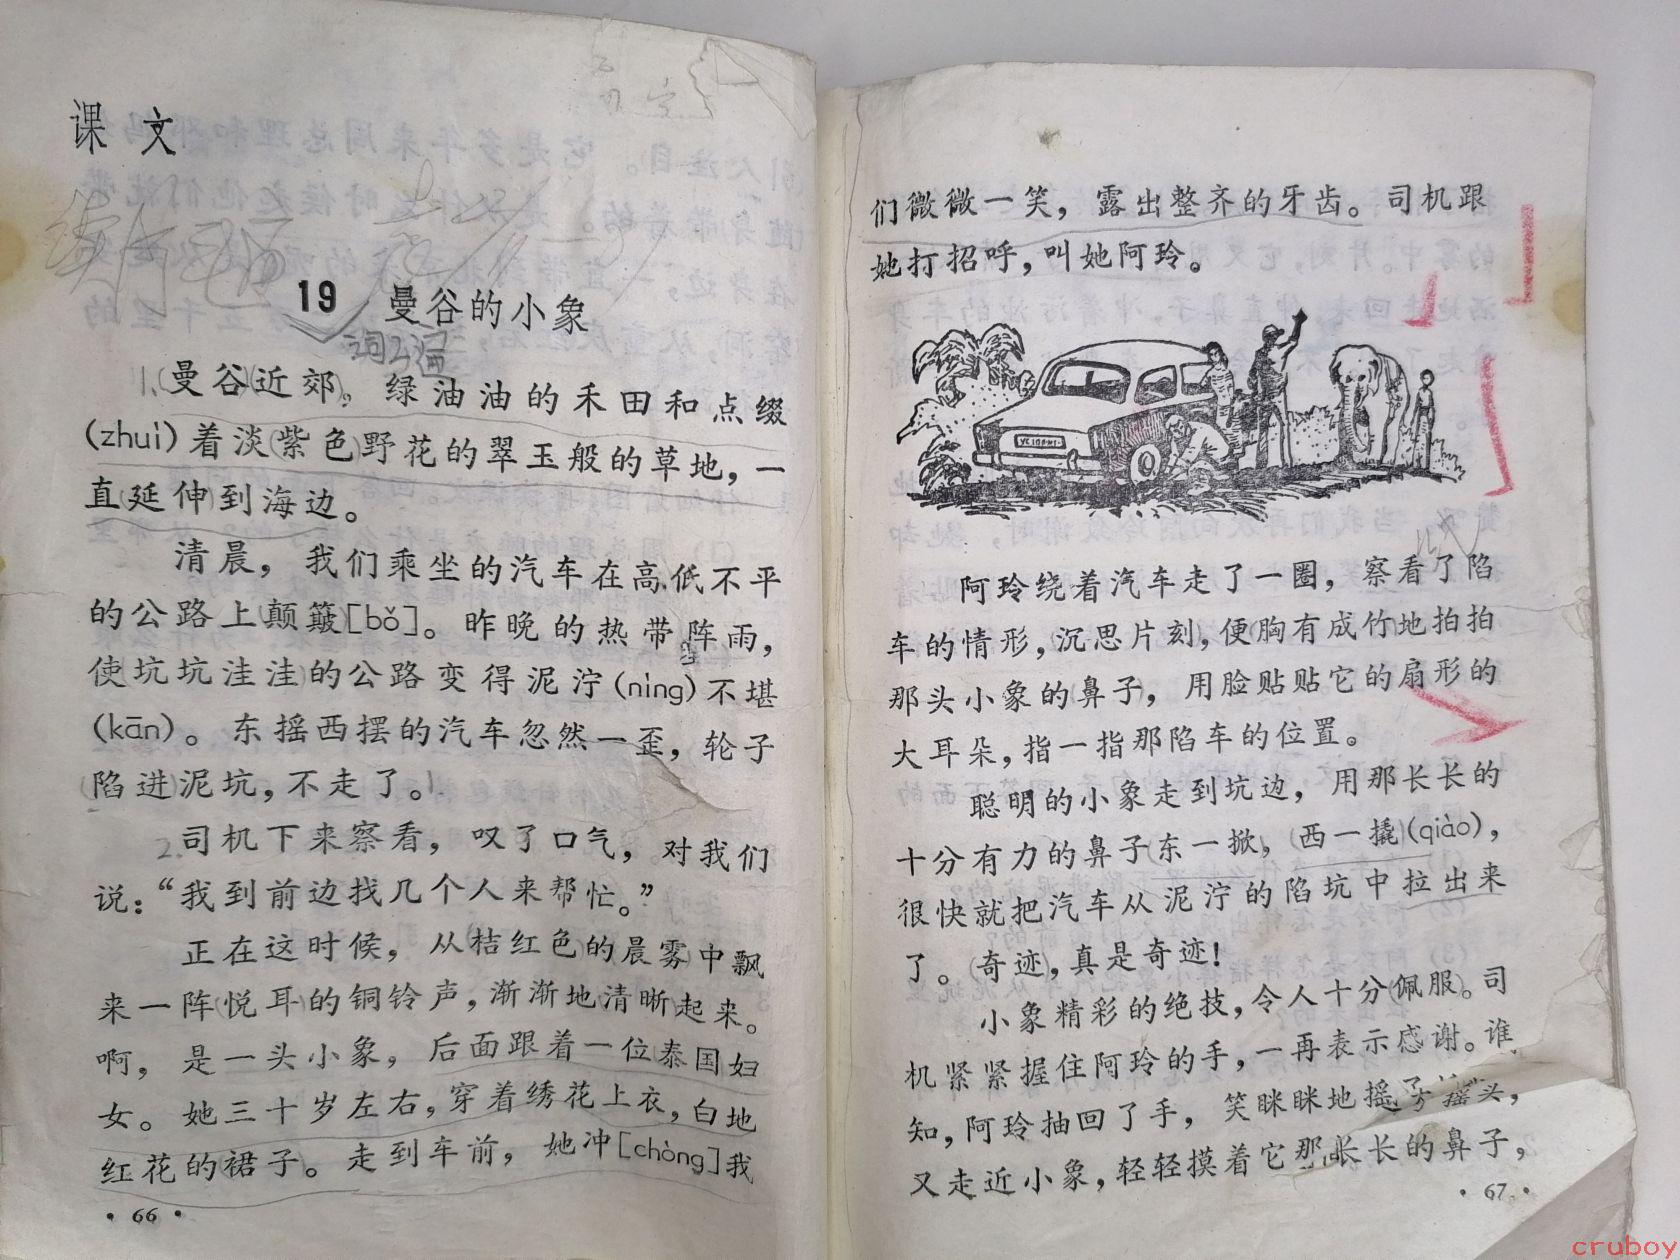 课 文
19 曼谷的小象
词2遍
1.曼谷近郊，绿油油的禾田和点缀
(zhuì)着淡紫色野花的翠玉般的草地，一
直延伸到海边。
清晨，我们乘坐的汽车在高低不平
的公路上颠簸[bǒ]。昨晚的热带阵雨，
使坑坑洼洼的公路变得泥泞(nìng)不堪
(kān)。东摇西摆的汽车忽然一歪，轮子
陷进泥坑，不走了。
2.司机下来察看，叹了口气，对我们
说：“我到前边找几个人来帮忙。”
正在这时候，从桔红色的晨雾中飘
来一阵悦耳的铜铃声，渐渐地清晰起来。
啊，是一头小象，后面跟着一位泰国妇
女。她三十岁左右，穿着绣花上衣，白地
红花的裙子。走到车前，她冲[chòng]我
·66·
们微微一笑，露出整齐的牙齿。司机跟
她打招呼，叫她阿玲。
阿玲绕着汽车走了一圈，察看了陷
车的情形，沉思片刻，便胸有成竹地拍拍
那头小象的鼻子，用脸贴贴它的扇形的
大耳朵，指一指那陷车的位置。
聪明的小象走到坑边，用那长长的
十分有力的鼻子东一掀，西一撬(qiào)，
很快就把汽车从泥泞的陷坑中拉出来
了。奇迹，真是奇迹！
小象精彩的绝技，令人十分佩服。司
机紧紧握住阿玲的手，一再表示感谢。谁
知，阿玲抽回了手，笑眯眯地摇了摇头，
又走近小象，轻轻摸着它那长长的鼻子，
·67·
cruboy